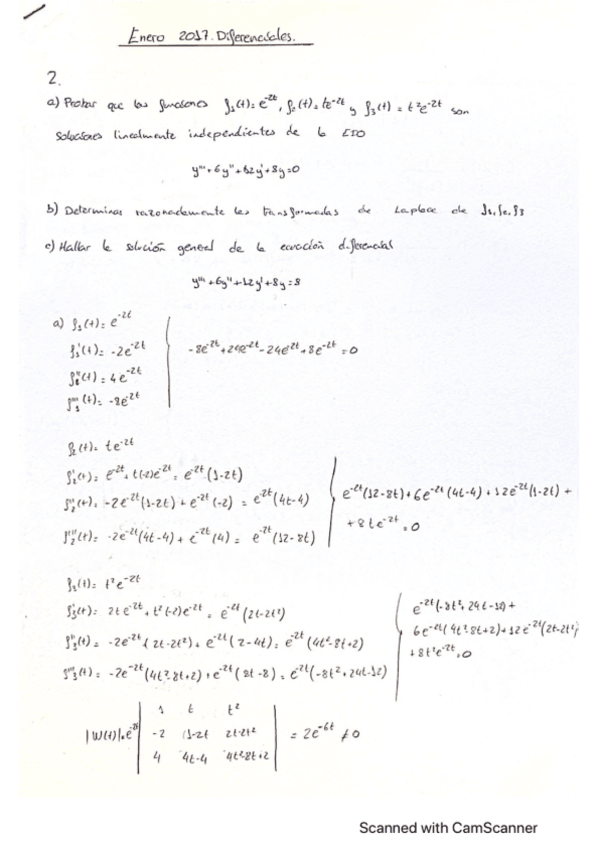 Enero 2017. Diferenciales.
2.
a) Probar que las funciones f₁(t)=e^-2t, f₂(t)=te^-2t y f₃(t)=t²e^-2t son
soluciones linealmente independientes de la EDO
y'''+6y''+12y'+8y=0
b) Determinar razonadamente las transformadas de Laplace de f₁,f₂,f₃
c) Hallar la solución general de la ecuación diferencial
y'''+6y''+12y'+8y=8
a) f₁(t)=e^-2t
f₁'(t)=-2e^-2t
-8e^-2t+24e^-2t-24e^-2t+8e^-2t=0
f₁''(t)=4e^-2t
f₁'''(t)=-8e^-2t
f₂(t)=te^-2t
f₂'(t)=e^-2t+t(-2)e^-2t=e^-2t(1-2t)
f₂''(t)=-2e^-2t(1-2t)+e^-2t(-2)=e^-2t(4t-4)
e^-2t(12-8t)+6e^-2t(4t-4)+12e^-2t(1-2t)+
+8te^-2t=0
f₂'''(t)=-2e^-2t(4t-4)+e^-2t(4)=e^-2t(12-8t)
f₃(t)=t²e^-2t
f₃'(t)=2te^-2t+t²(-2)e^-2t=e^-2t(2t-2t²)
f₃''(t)=-2e^-2t(2t-2t²)+e^-2t(2-4t)=e^-2t(4t²-8t+2)
f₃'''(t)=-2e^-2t(4t²-8t+2)+e^-2t(8t-8)=e^-2t(-8t²+24t-12)
e^-2t(-8t²+24t-12)+
6e^-2t(4t²-8t+2)+12e^-2t(2t-2t²)
+8t²e^-2t=0
1 t t²
|W(t)|=e^-2t -2 1-2t 2t-2t² =2e^-6t≠0
4 4t-4 4t²-8t+2
Scanned with CamScanner